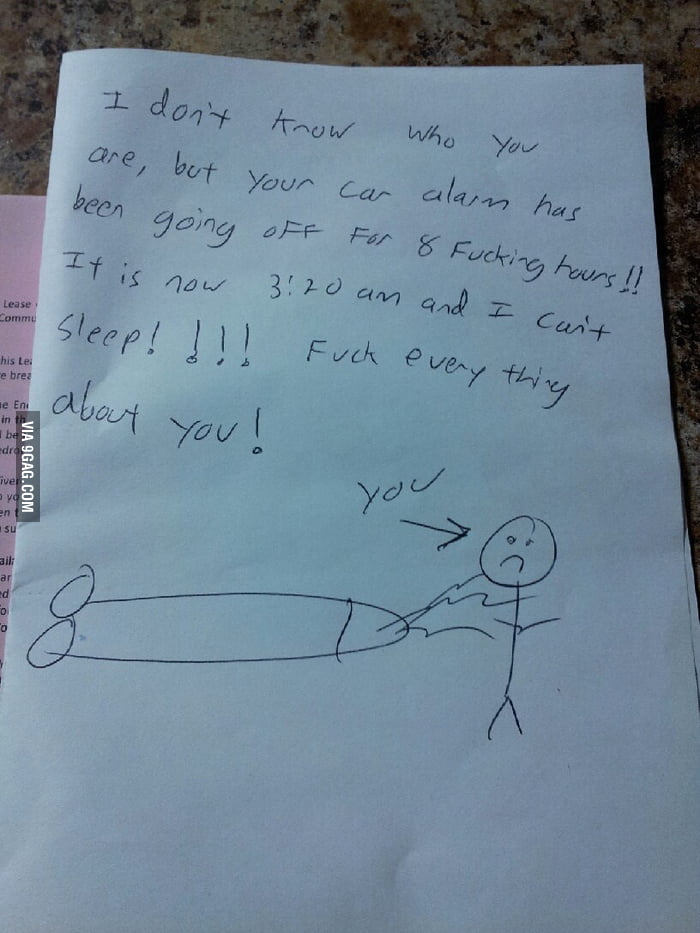 I don't know who you
are, but your car alarm has
been going off for 8 Fucking hours!!
It is now 3:20 am and I can't
Sleep! !!! Fuck every thing
about you!
you
Lease
Commu
his Lea
e brea
e En
in th
be
edro
VIA 9GAG.COM